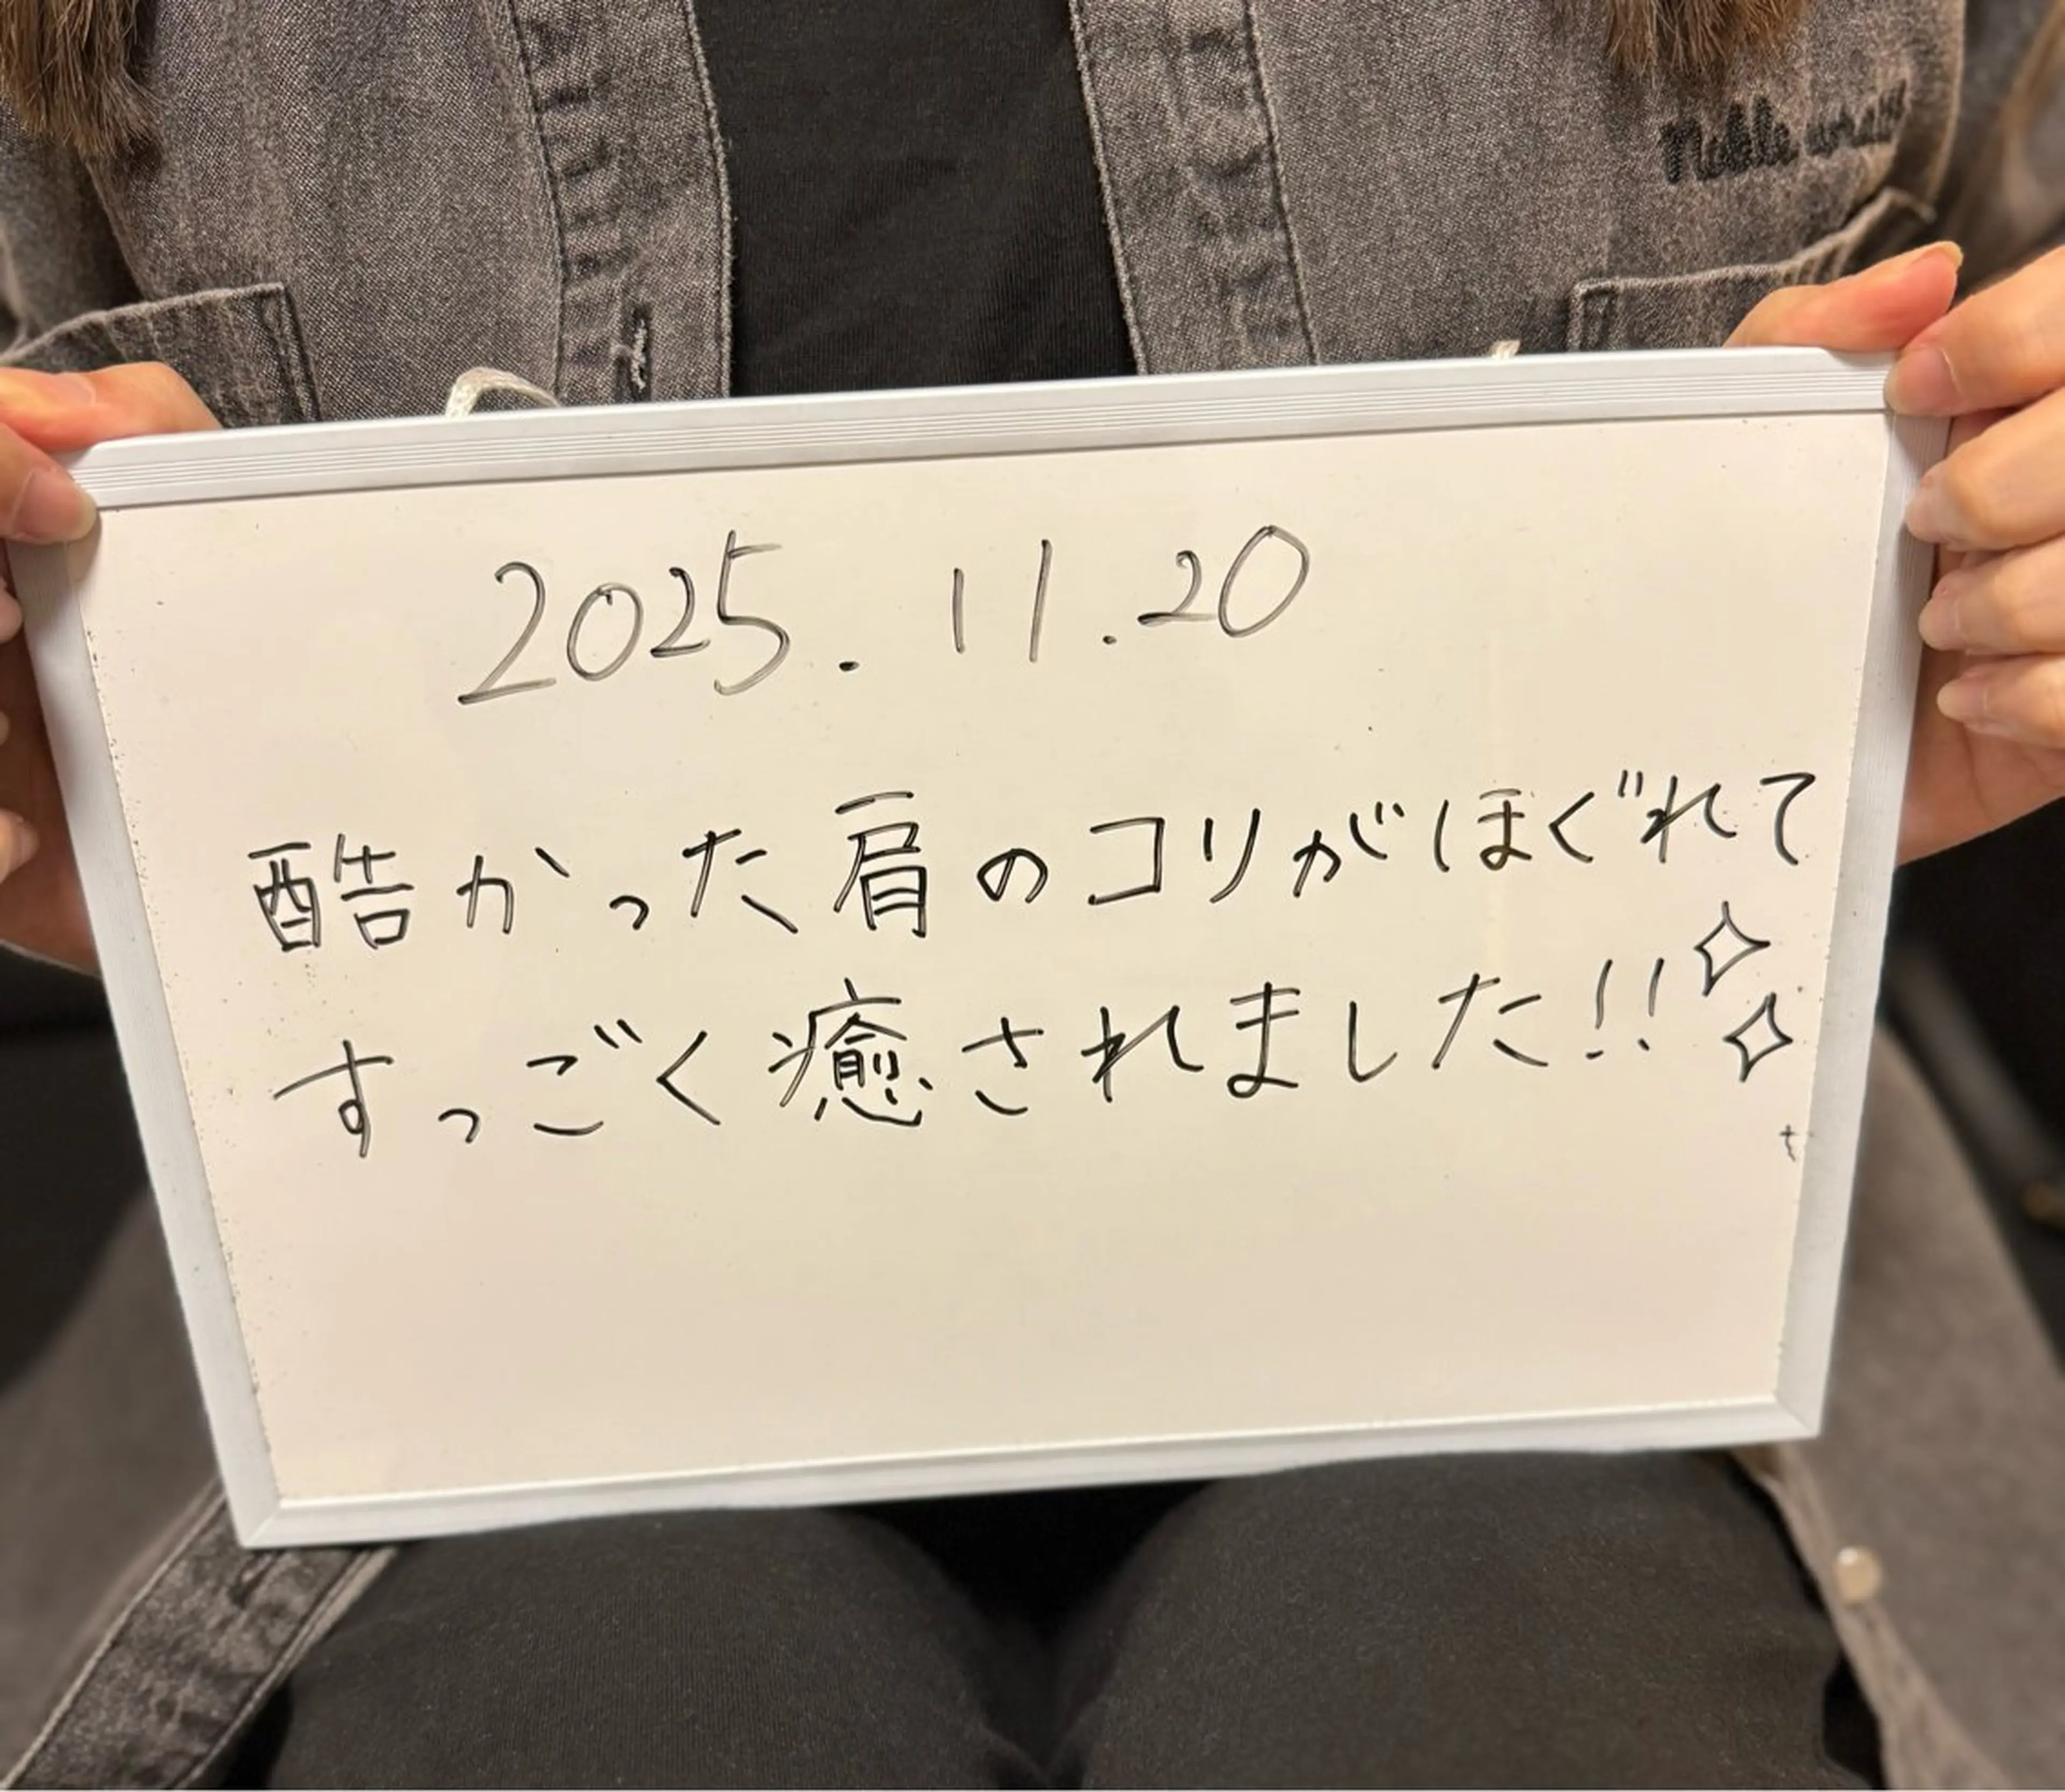 2025.11.20
酷かった肩のコリがほぐれて
すっごく癒されました!!